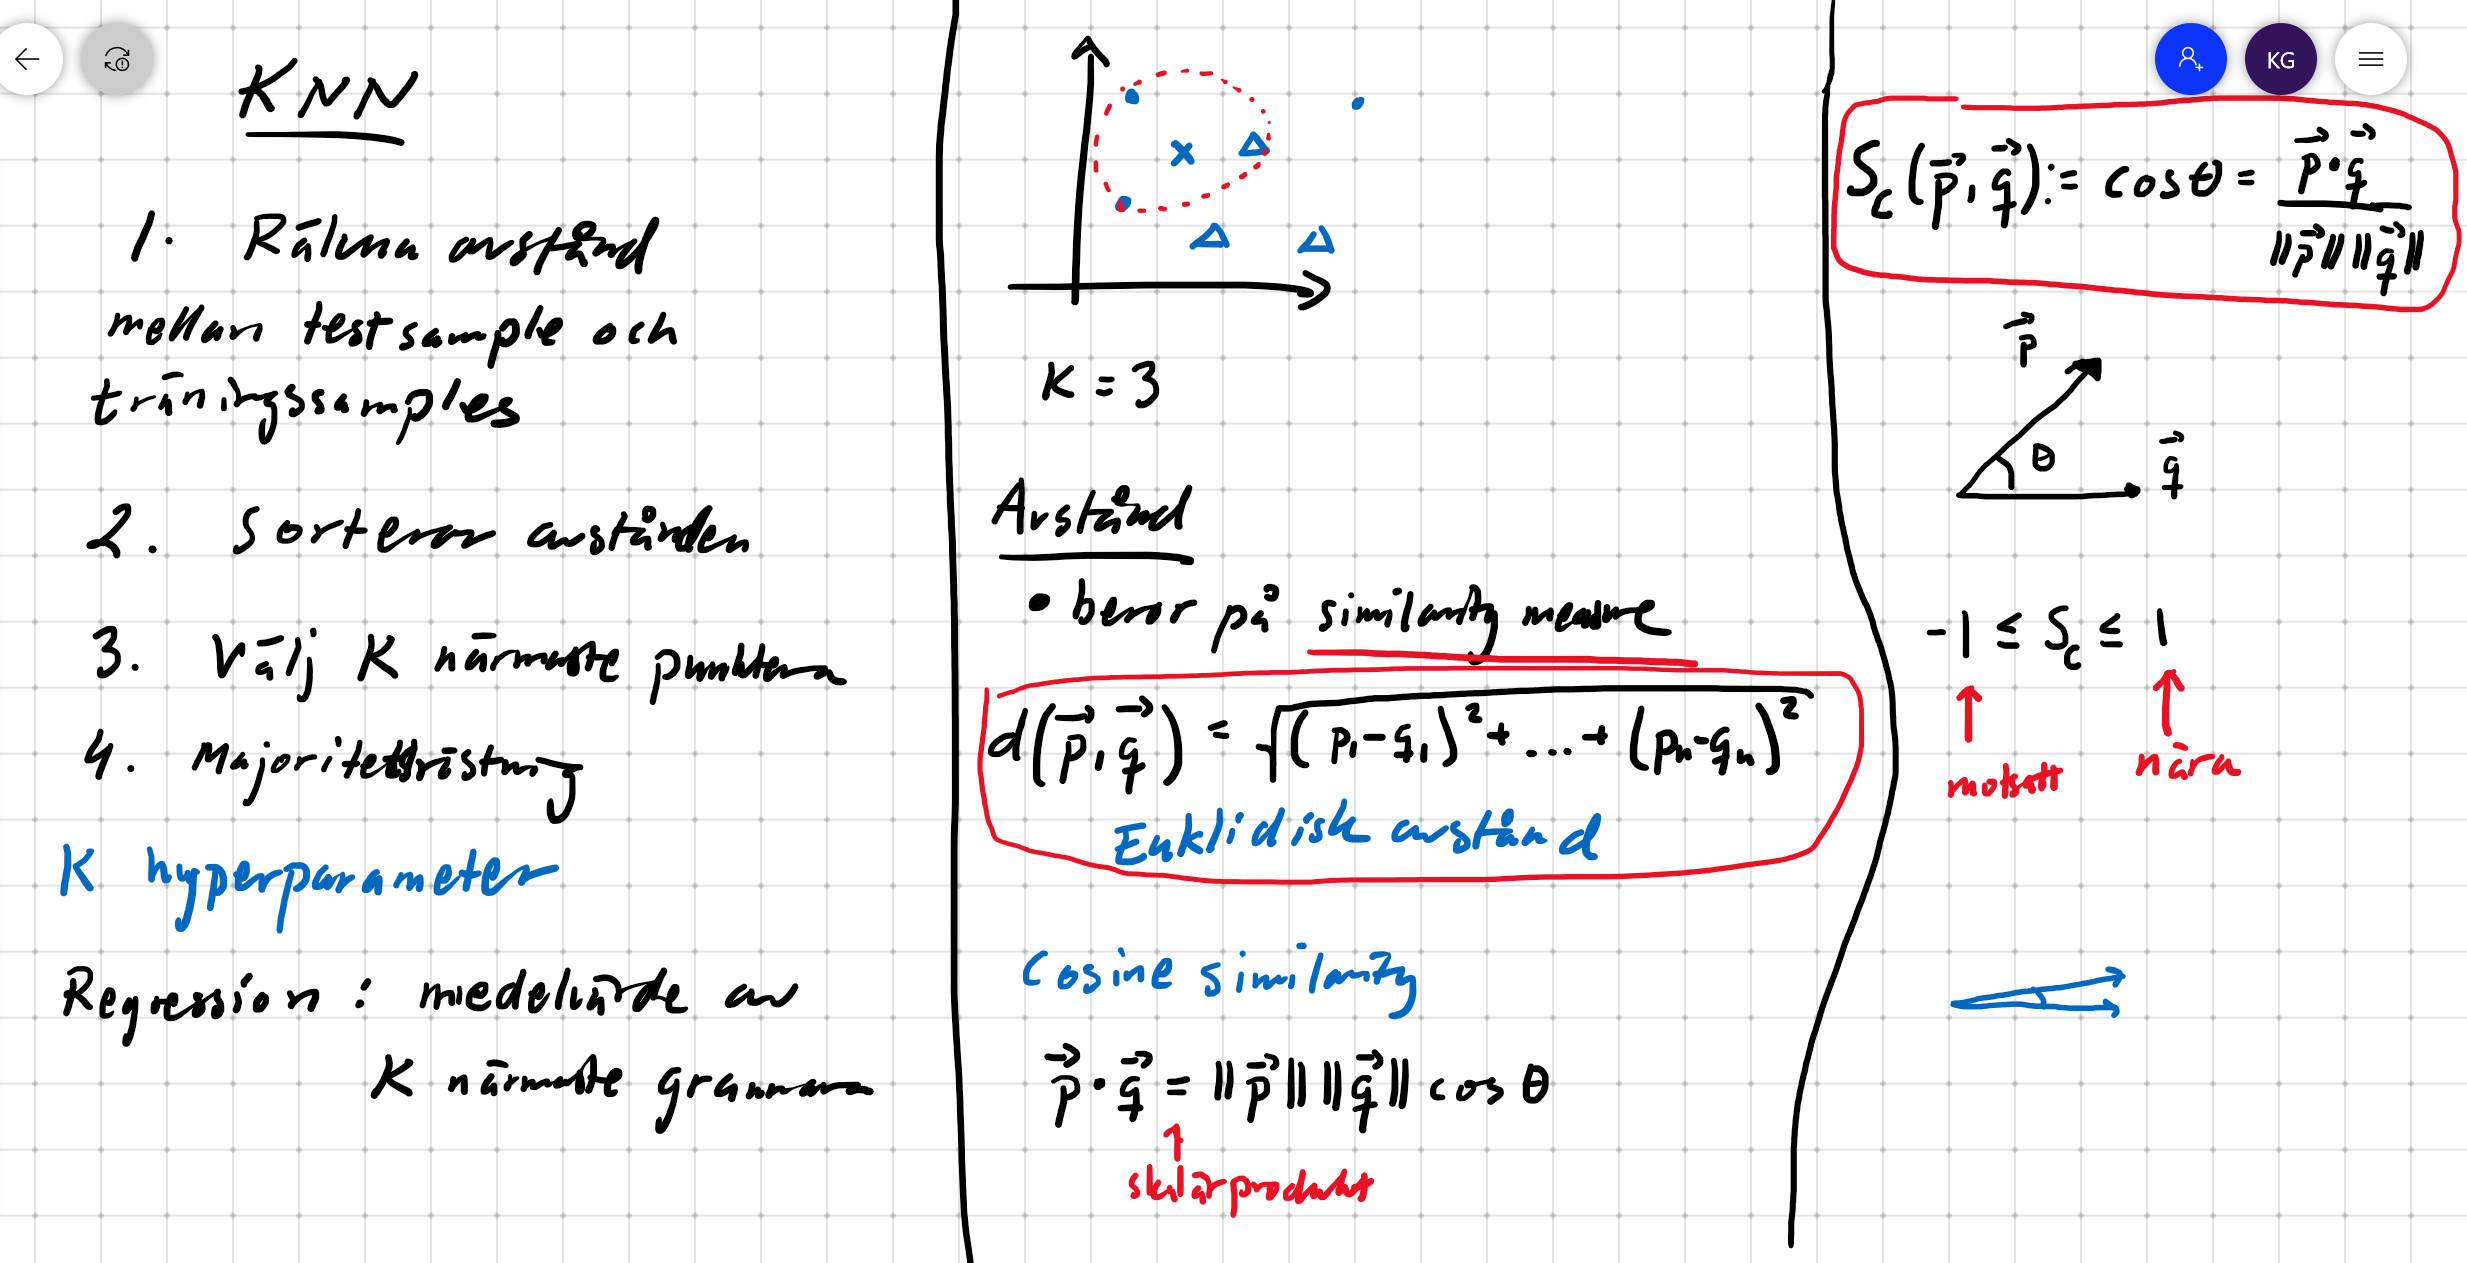 KNN
1. Räkna avstånd
mellan testsample och
träningssamples
2. Sortera avstånden
3. Välj K närmaste punkterna
4. Majoritetsröstning
K hyperparameter
Regression: medelvärde av
K närmaste grannarna
K = 3
Avstånd
• beror på similarity measure
d(p⃗, q⃗) = √((p₁-q₁)² + ... + (pₙ-qₙ)²)
Euklidisk avstånd
Cosine similarity
p⃗ · q⃗ = ||p⃗|| ||q⃗|| cos θ
skalärprodukt
KG
S_c(p⃗, q⃗) := cos θ = p⃗·q⃗ / ||p⃗|| ||q⃗||
p⃗
θ
q⃗
-1 ≤ S_c ≤ 1
motsatt nära